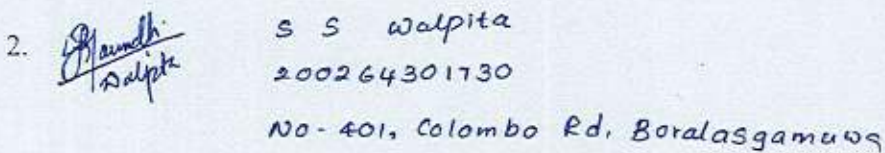 2. S S Walpita
200264301730
No-401, Colombo Rd, Boralasgamuwa